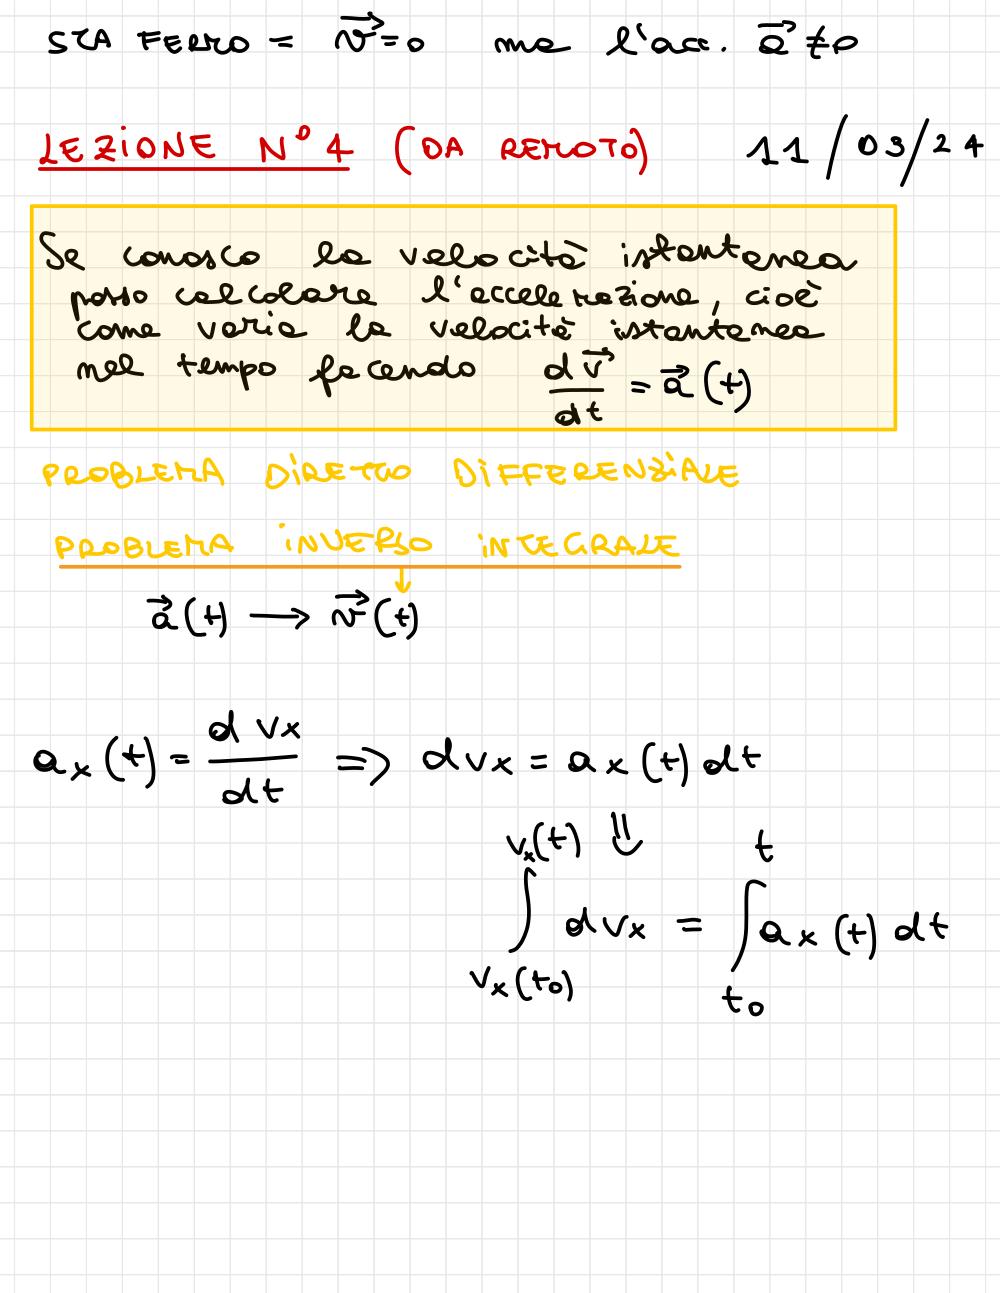 STA FERMO = v⃗ = 0 ma l'acc. a⃗ ≠ 0
LEZIONE N° 4 (DA REMOTO) 11/03/24
Se conosco la velocità istantanea
posso calcolare l'accelerazione, cioè
come varia la velocità istantanea
nel tempo facendo dv⃗/dt = a⃗(t)
PROBLEMA DIRETTO DIFFERENZIALE
PROBLEMA INVERSO INTEGRALE
↓
a⃗(t) → v⃗(t)
ax(t) = dvx/dt ⇒ dvx = ax(t) dt
⇓
∫_{vx(t0)}^{vx(t)} dvx = ∫_{t0}^{t} ax(t) dt